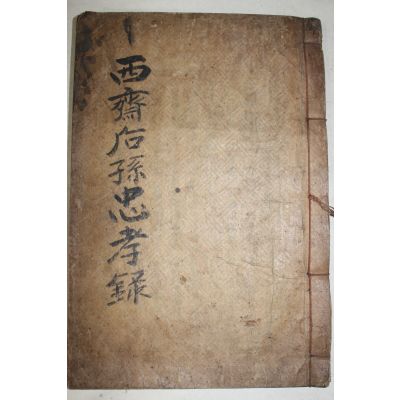 西齋后孫忠孝錄